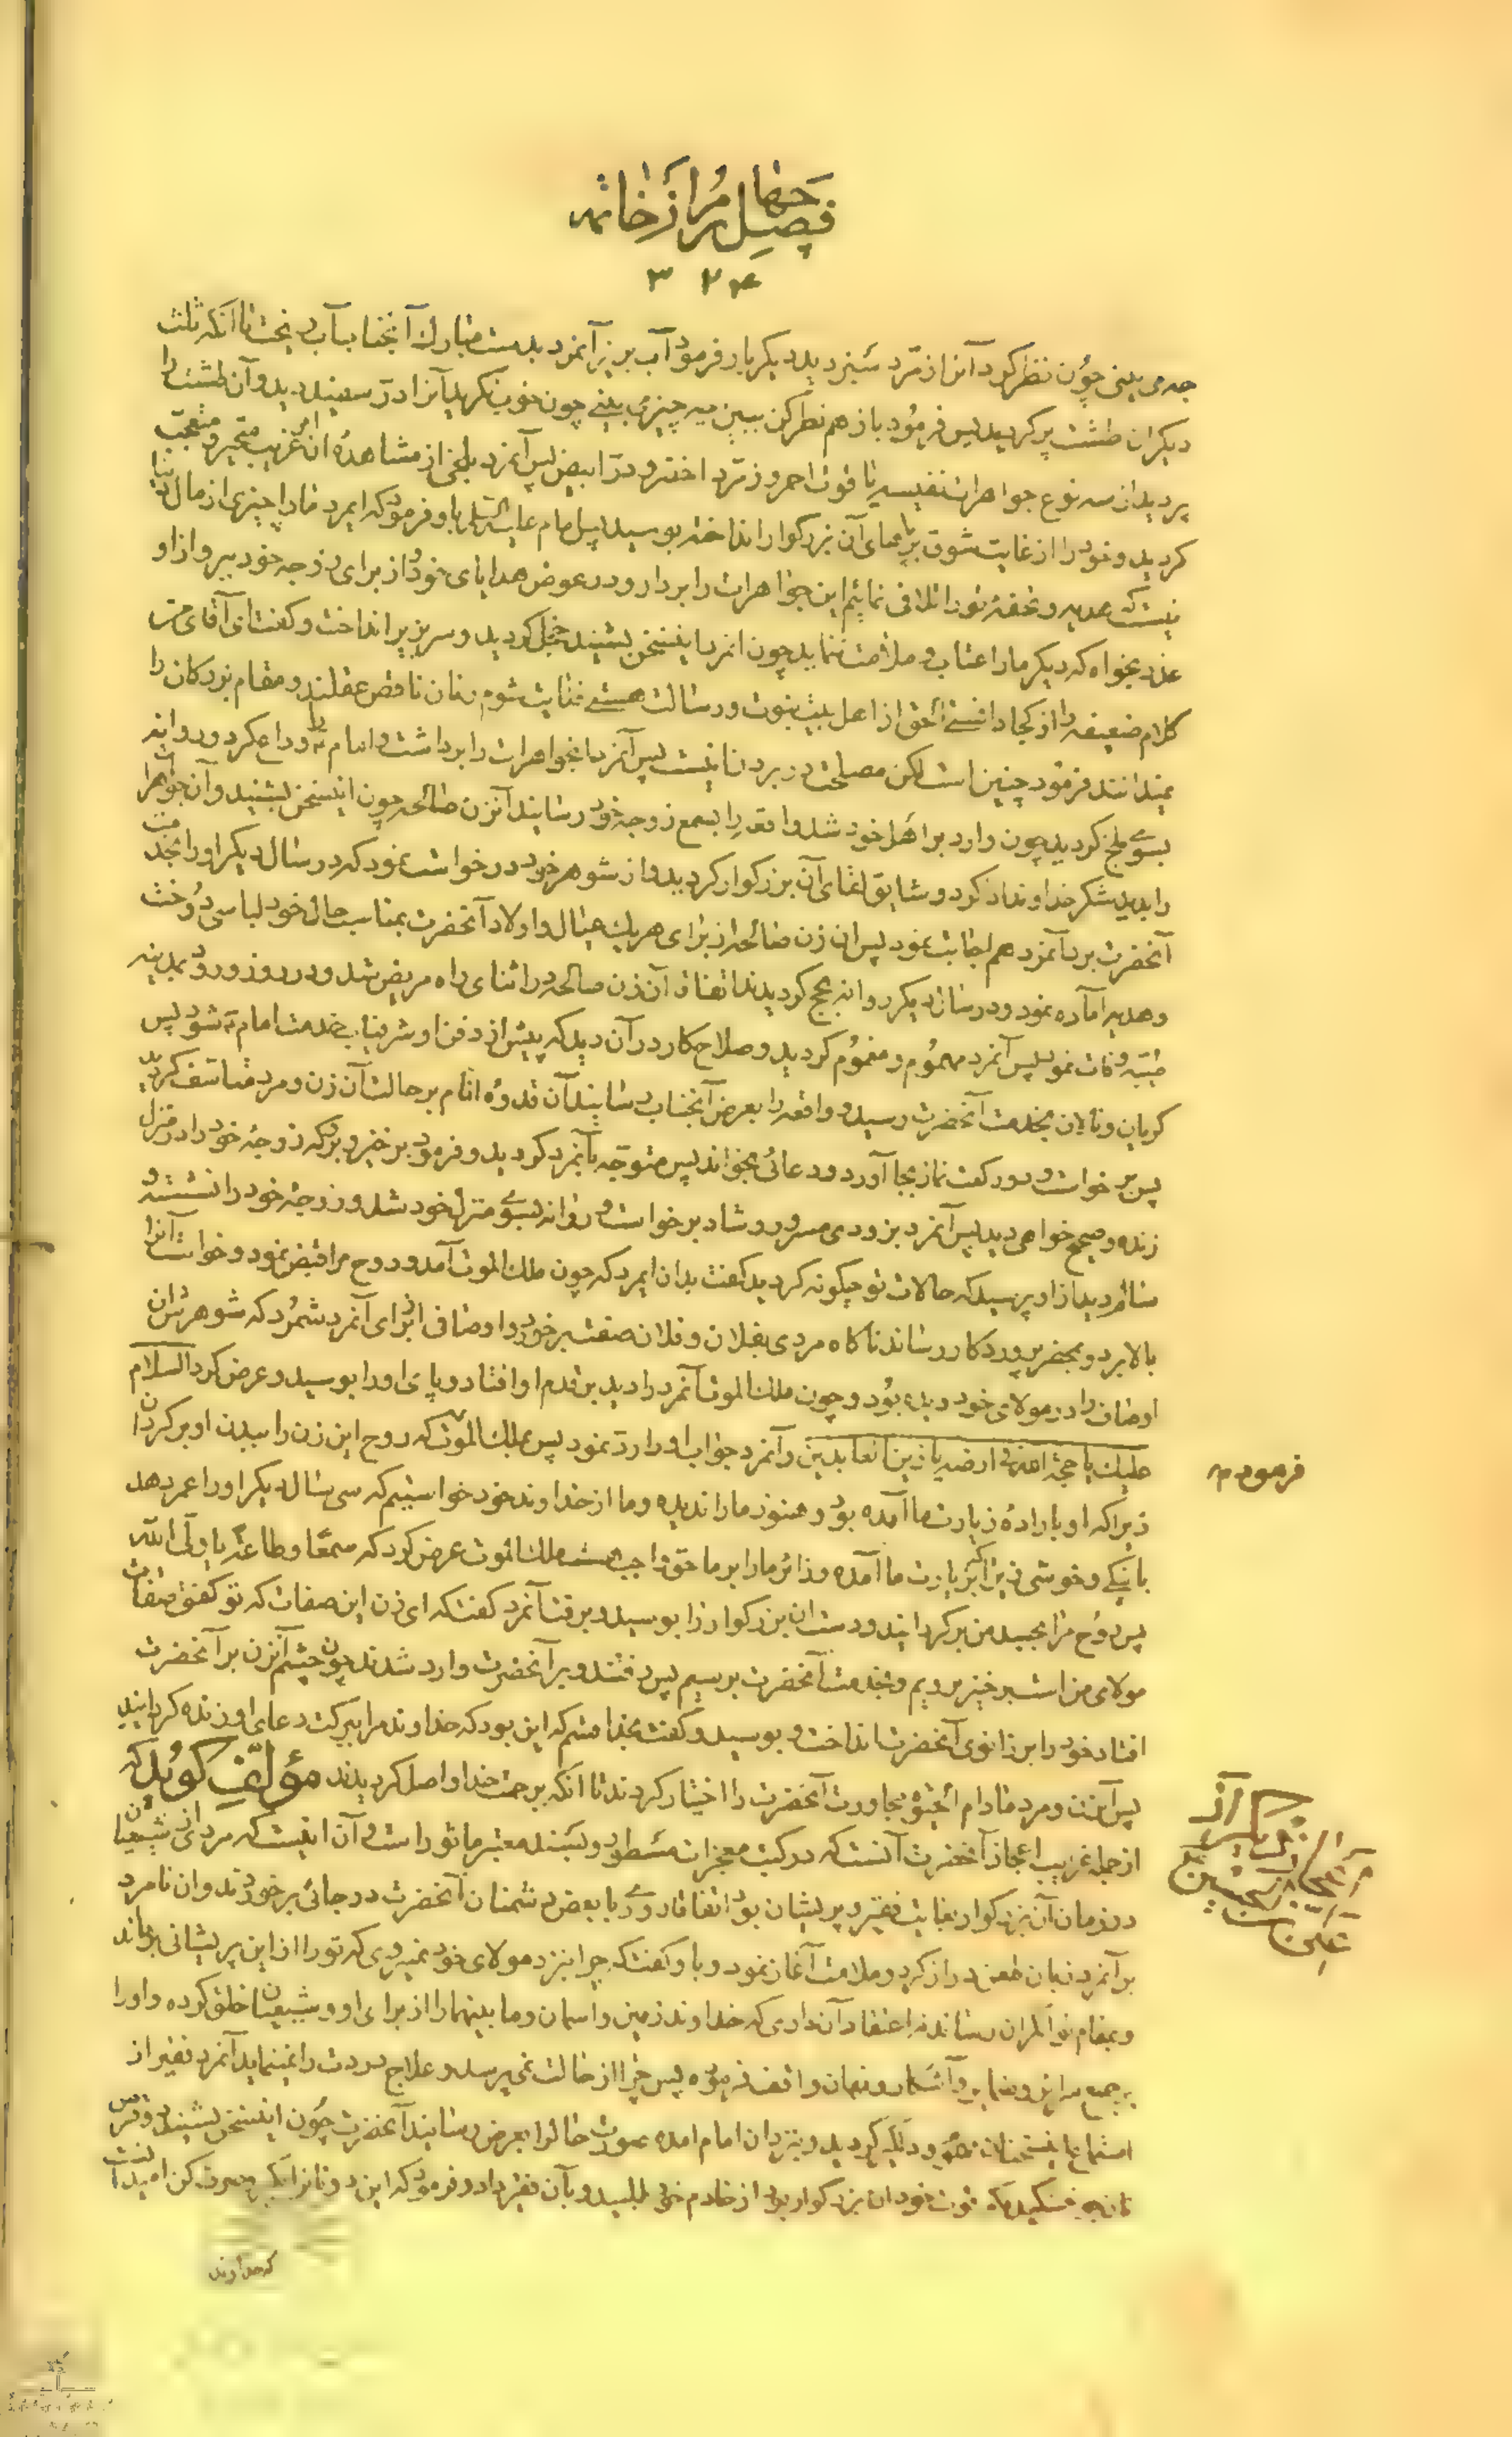 فصل چهارم از خاتمه
۳۲۴
چه می بینی چون نظر کرد آنرا زمرّد سبز دید دیگر بار فرمود آب بریز آنمرد بدست مبارک آنجناب آب ریخت تا آنکه ثلث
دیگر ان طشت پر گردید پس فرمود باز هم نظر کن ببین چه چیز می بینی چون خوب نگریدا آنرا درّ سفید دید و آن طشت را
پر دید از سه نوع جواهرات نفیسه یاقوت احمر و زمرّد اخضر و درّ ابیض پس آنمرد بلخی از مشاهدهٔ ان امر غریب متحیر و متعجب
گردید و خود را از غایت شوق بر پاهای آن بزرگوار انداخته بوسید پس امام علیه السلام باو فرمود که ایمرد ما را چیزی از مال دنیا
نیست که هدیه و تحفهٔ تو را تلافی نمائیم این جواهرات را بردار و در عوض هدایای خود از برای زوجه خود ببر و از او
عذر بخواه که دیگر ما را عتاب و ملامت ننماید چون انمرد اینسخن بشنید خجل گردید و سر بزیر انداخت و گفت ای آقای من
کلام ضعیفه را از کجا دانستی الحق از اهل بیت نبوت و رسالت هستی فدایت شوم زنان ناقص عقلند و مقام بزرگان را
نمیدانند فرمود چنین است لکن مصلحت در بردن آنست پس آنمرد انجواهرات را برداشت و امام ؑ را وداع کرد و روانه
بسوی بلخ گردید چون وارد بر اهل خود شد واقعه را بسمع زوجه خود رسانید آنزن صالحه چون اینسخن بشنید و آن جواهرات
را بدید شکر خداوند کرد و شایق لقای آن بزرگوار گردید و از شوهر خود درخواست نمود که در سال دیگر او را بخدمت
آنحضرت برد آنمرد هم اجابت نمود پس ان زن صالحه از برای هر یک عیال و اولاد آنحضرت بمناسب حال خود لباسی دوخت
و هدیه اماده نمود و در سال دیگر روانه حج گردیدند اتفاقا آن زن صالحه در اثنای راه مریض شد و در روز ورود بمدینه
طیّبه وفات نمود پس آنمرد مهموم و مغموم گردید و صلاح کار در آن دید که پیش از دفن او شرفیاب خدمت امام ؑ شود پس
گریان و نالان بخدمت آنحضرت رسید و واقعه را بعرض آنجناب رسانید آن قدوهٔ انام بر حالت آن زن و مرد متاسف گردید
پس برخواست و دو رکعت نماز بجا آورد و دعائی بخواند پس متوجّه بآنمرد گردید و فرمود برخیز و برو که زوجهٔ خود را در منزل
زنده و صحیح خواهی دید پس آنمرد بزودی مسرور و شاد برخواست و روانه بسوی منزل خود شد و زوجهٔ خود را نشسته و
سالم دید از او پرسید که حالات تو چگونه گردید گفت بدان ایمرد که چون ملک الموت آمد و روح مرا قبض نمود و خواست آنرا
بالا برد و بحضرت پروردگار رساند ناگاه مردی بفلان و فلان صفت برخورد و اوصاف او را برای آنمرد شمرد که شوهرش ان
اوصاف را در مولای خود دیده بود و چون ملک الموت آنمرد را دید بر قدم او افتاد و پای او را بوسید و عرض کرد السلام
علیک یا حجة الله فی ارضه یا زین العابدین و آنمرد جواب او را ردّ نمود پس بملک الموت فرمود ؑ که روح این زن را ببدن او برگردان
زیرا که او باراده زیارت ما آمده بود و هنوز ما را ندیده و ما از خداوند خود خواستیم که سی سال دیگر او را عمر دهد
با نیکی و خوشی زیرا که بزیارت ما آمده و زائر ما را بر ما حق واجب هست ملک الموت عرض کرد که سمعًا و طاعة یا ولیّ الله
پس روح مرا بجسد من برگردانید و دست ان بزرگوار را بوسید و برفت آنمرد گفت که ای زن این صفات که تو گفتی صفات
مولای من است برخیز برویم و بخدمت آنحضرت برسیم پس رفتند و بر آنحضرت وارد شدند چون چشم آنزن بر آنحضرت
افتاد خود را بر زانوی آنحضرت انداخت و بوسید و گفت بخدا قسم که این بود که خداوند مرا ببرکت دعای او زنده گردانید
پس آنزن و مرد مادام الحیوة مجاورت آنحضرت را اختیار کردند تا انکه برحمت خدا واصل گردیدند مؤلف گوید که
از جمله غرایب اعجاز آنحضرت آنست که در کتب معجزات مسطور و بسند معتبر ماثور است و آن اینست که مردی از شیعیان
در زمان آن بزرگوار بغایت فقیر و پریشان بود اتفاقا روزی با بعض دشمنان آنحضرت در جائی برخوردند و ان نامرد
بر آنمرد زبان طعن دراز کرد و ملامت آغاز نمود و باو گفت که چرا بنزد مولای خود نمیروی که تو را از این پریشانی برهاند
و بمقام توانگران رساند نه اعتقاد آن داری که خداوند زمین و اسمان و ما بینهما را از برای او و شیعیان خلق کرده و او را
بر جمیع سرایر و ضمایر و آشکار و نهان واقف فرموده پس چرا از حالت نمی پرسد و علاج دردت را نمینماید آنمرد فقیر از
استماع اینسخنان مهموم و دلگیر گردید و بنزد ان امام امده صورت حال را بعرض رسانید آنحضرت چون اینسخن بشنید دو قرص
نان جو خشکیده که قوت خود ان بزرگوار بود از خادم خود طلبید و بآن فقیر داد و فرمود که این دو نان را بگیر و صرف کن امید است
که خداوند
فرمود ؑ
علی بن الحسین ؑ